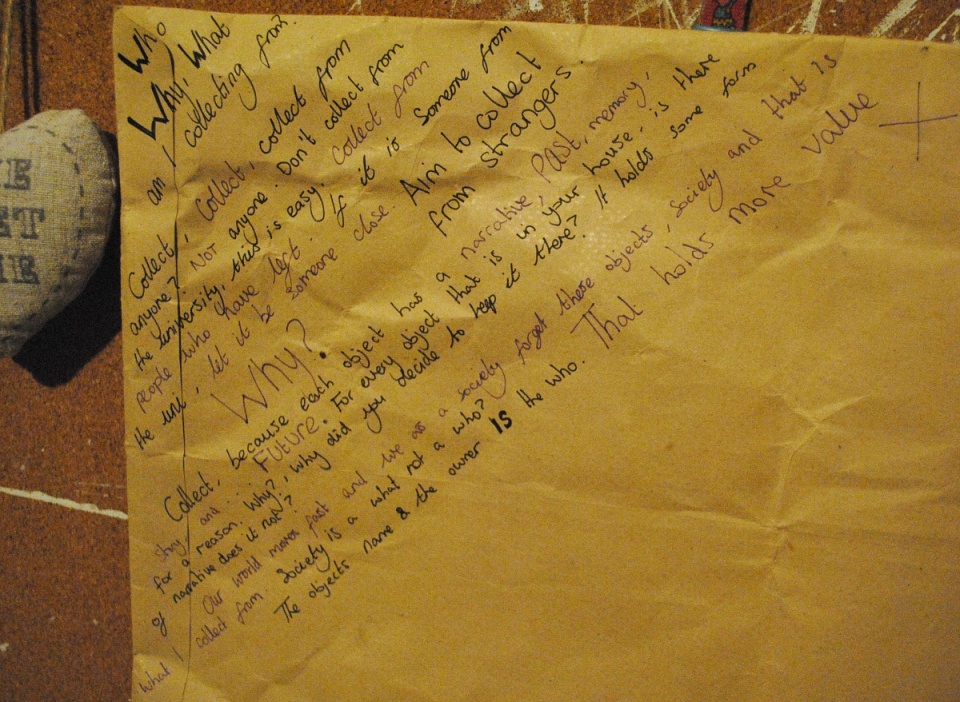 Who
Why, What
am I collecting from?
Collect, collect, collect from
anyone? Not anyone. Don't collect from
the university, this is easy. Collect from
people who have left. If it is someone from
the uni, let it be someone close. Aim to collect
from strangers.
Why?
Collect, because each object has a narrative, Past, memory,
story and... Future. For every object that is in your house, is there
for a reason. Why?, why did you decide to keep it there? It holds some form
of narrative does it not?
Our world moves fast and we as a society forget these objects, society and that is
what I collect from. Society is a what not a who?
The objects name & the owner IS the who. That holds more value